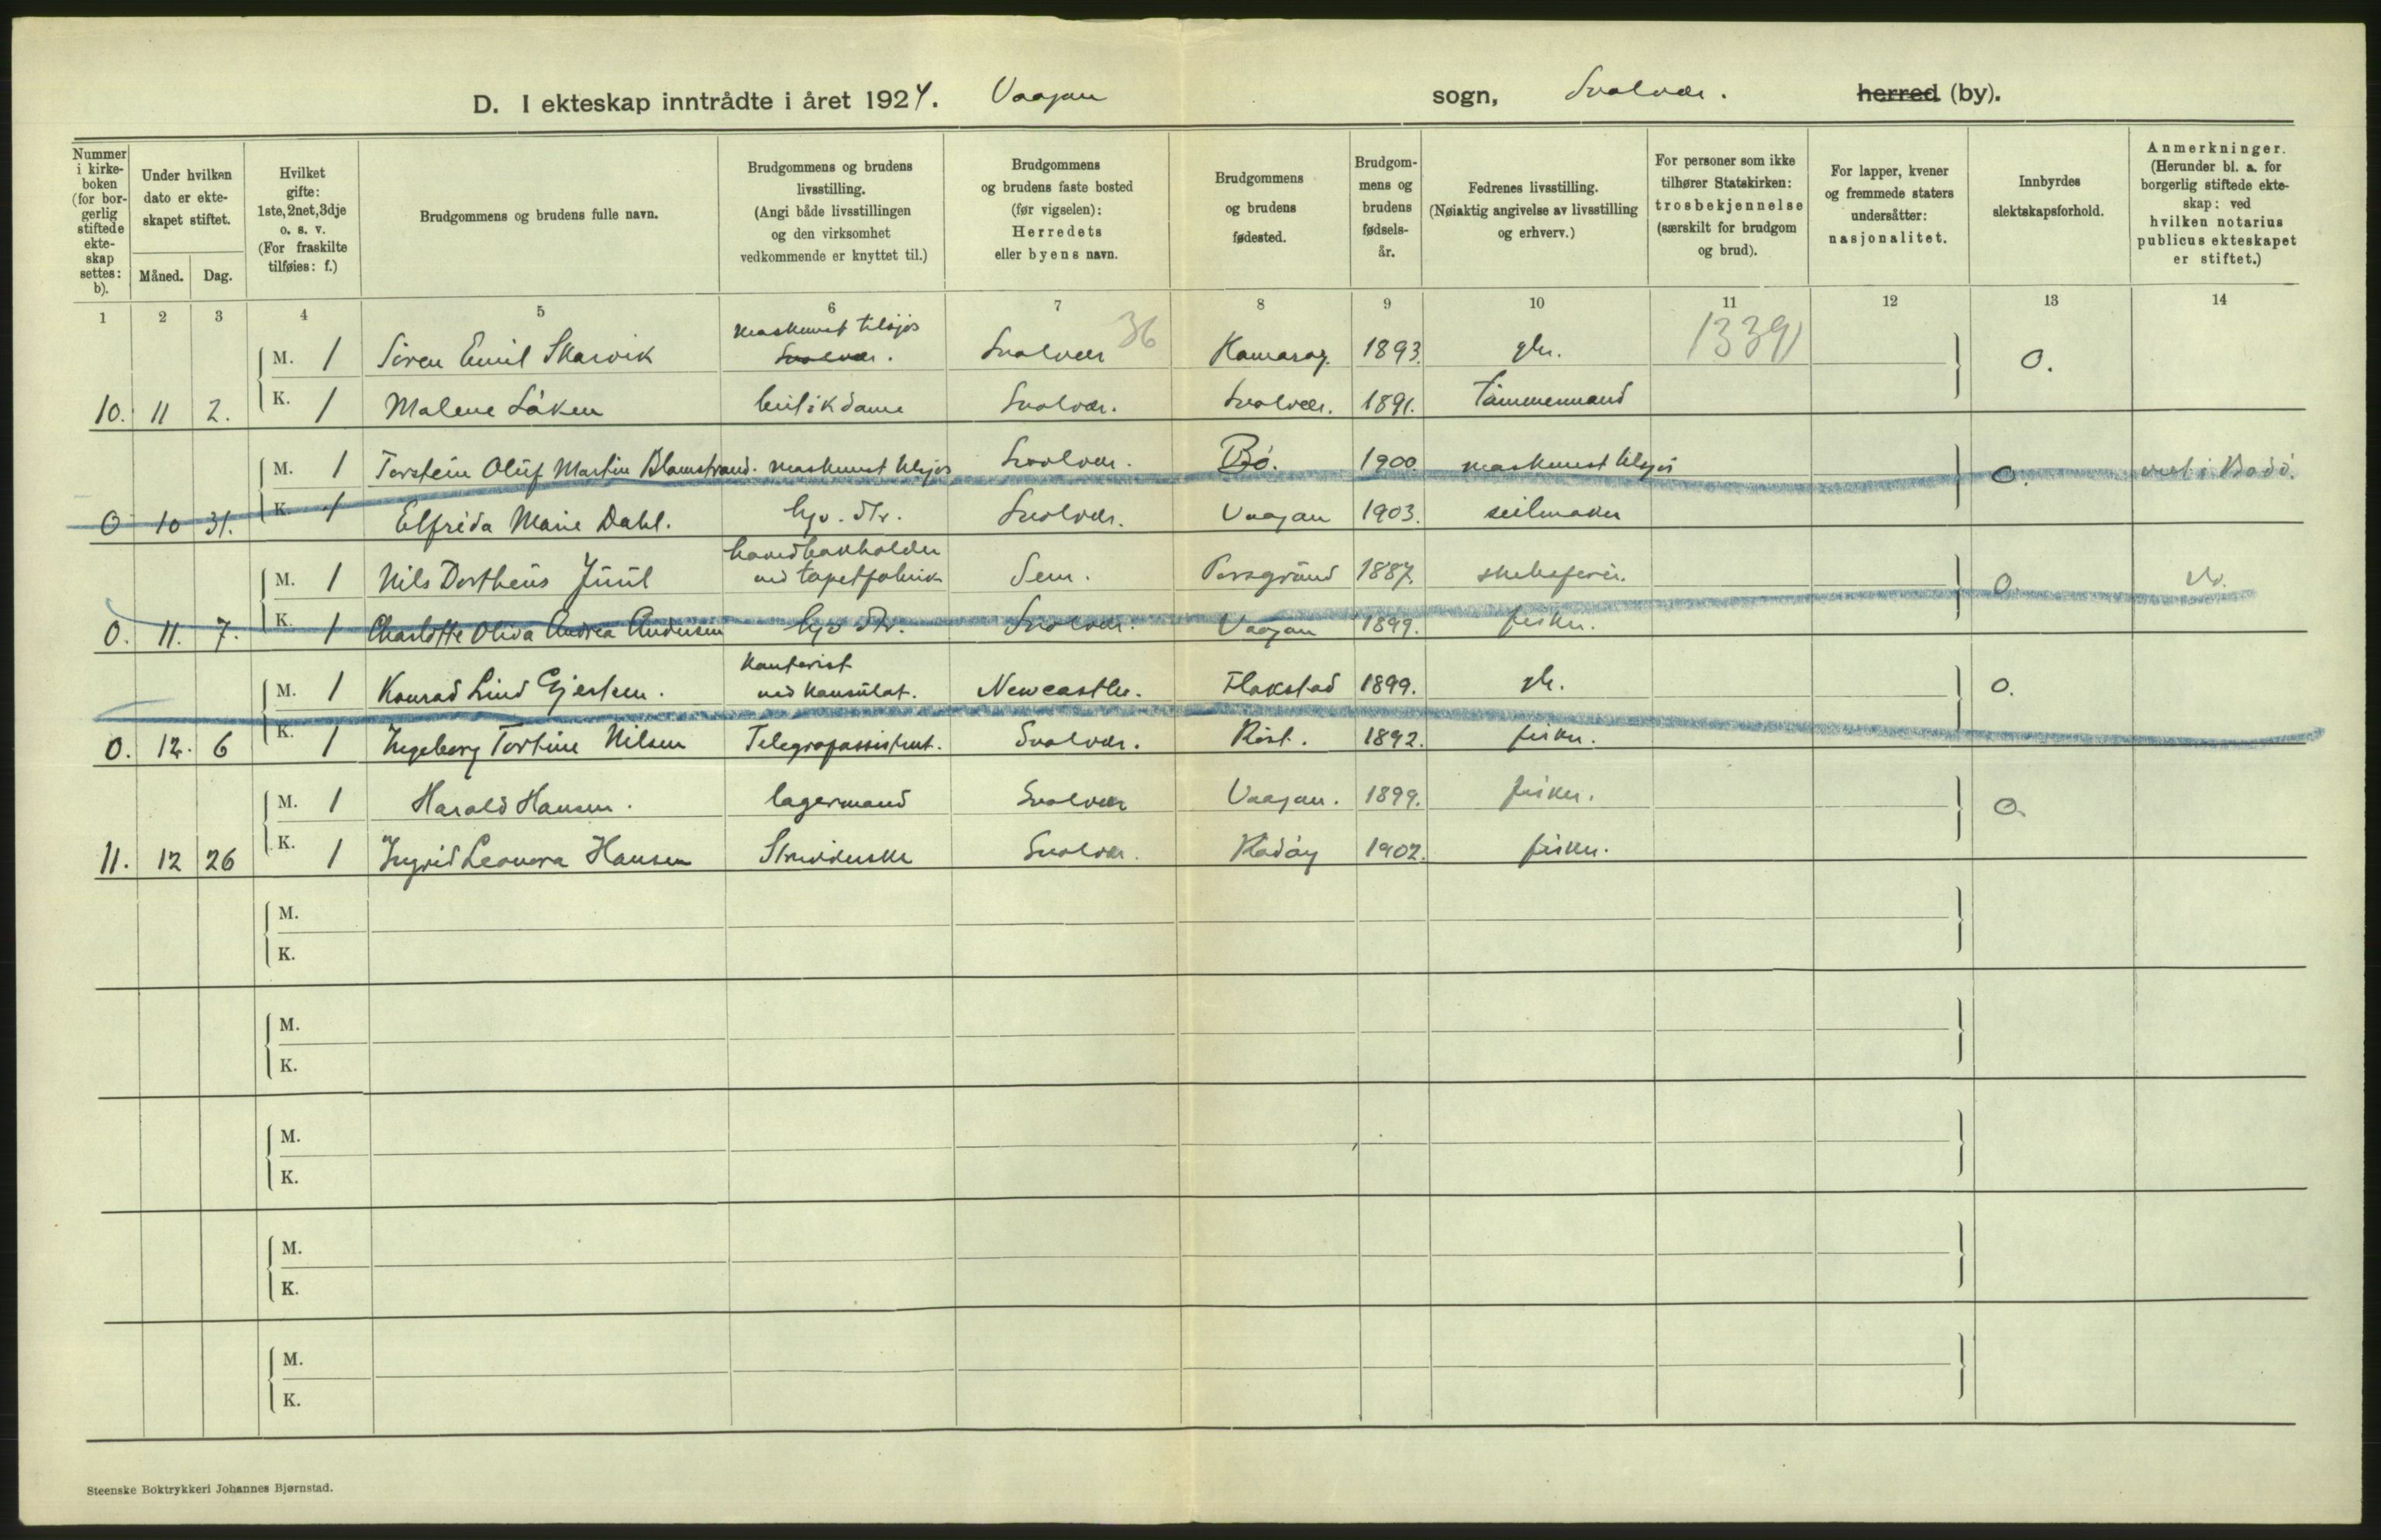 D. I ekteskap inntrådte i året 1924. Vaagan sogn, Svolvær. herred (by).
Nummer i kirkeboken (for borgerlig stiftede ekteskap settes: b).
Under hvilken dato er ekteskapet stiftet.
Måned. Dag.
Hvilket gifte: 1ste, 2net, 3dje o. s. v. (For fraskilte tilføies: f.)
Brudgommens og brudens fulle navn.
Brudgommens og brudens livsstilling. (Angi både livsstillingen og den virksomhet vedkommende er knyttet til.)
Brudgommens og brudens faste bosted (før vigselen): Herredets eller byens navn.
Brudgommens og brudens fødested.
Brudgommens og brudens fødselsår.
Fedrenes livsstilling. (Nøiaktig angivelse av livsstilling og erhverv.)
For personer som ikke tilhører Statskirken: trosbekjennelse (særskilt for brudgom og brud).
For lapper, kvener og fremmede staters undersåtter: nasjonalitet.
Innbyrdes slektskapsforhold.
Anmerkninger. (Herunder bl. a. for borgerlig stiftede ekteskap: ved hvilken notarius publicus ekteskapet er stiftet.)
1 2 3 4 5 6 7 8 9 10 11 12 13 14
maskinist tilsjøs
M. 1 Sören Emil Skarvik Svolvær. Svolvær 36 Hamarøy. 1893. gbr. 1339 0.
10. 11 2. K. 1 Malene Löken butikdame Svolvær. Svolvær. 1891. tömmermand
M. 1 Torstein Oluf Martin Blomstrand. maskinist tilsjøs Svolvær. Bö. 1900 maskinist tilsjøs 0. viet i Bodö.
0 10 31. K. 1 Elfrida Marie Dahl. hjv. dtr. Svolvær. Vaagan 1903. seilmaker
M. 1 Nils Dortheus Juul ved tapetfabrik Sem. Porsgrund 1887. 0. do.
0. 11. 7. K. 1 Charlotte Oliva Andrea Andersen hjv dtr. Svolvær. Vaagan 1899. fisker.
kontorist
M. 1 Konrad Lind Gjertsen. ved konsulat. Newcastle. Flakstad 1899. gbr. 0.
0. 12. 6 K. 1 Ingeborg Tortine Nilsen Telegrafassistent. Svolvær. Röst. 1892. fisker.
M. 1 Harald Hansen. lagermand Svolvær Vaagan. 1899. fisker. 0.
11. 12 26 K. 1 Ingrid Leonora Hansen Svolvær. Rödöy 1902. fisker.
M.
K.
M.
K.
M.
K.
M.
K.
M.
K.
Steenske Boktrykkeri Johannes Bjørnstad.